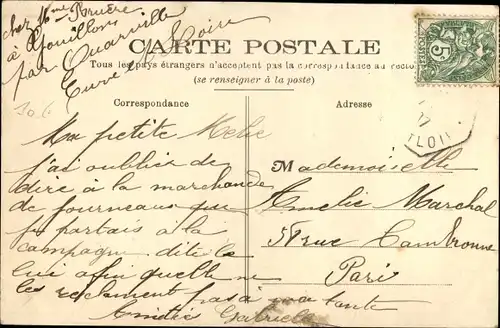 chez Mme Bruère
à Gouillons
par Ouarville
Eure et Loire
CARTE POSTALE
Tous les pays étrangers n'acceptent pas la correspondance au recto
(se renseigner à la poste)
Correspondance
Adresse
Ma petite Melie
j'ai oublier de
dire à la marchande
de fourneaux que
je partais à la
campagne dite le
lui afin quelle ne
les réclament pas à ma tante
Amitié Gabrielle
Mademoiselle
Amelie Marchal
58 rue Cambronne
Paris
5c